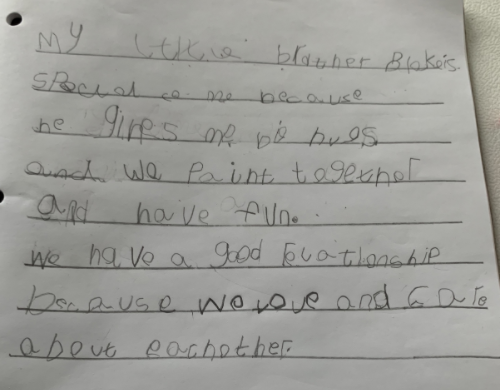 My little brother Blake is
special to me because
he gives me big hugs
and we paint together
and have fun.
We have a good relationship
because we love and care
about eachother.